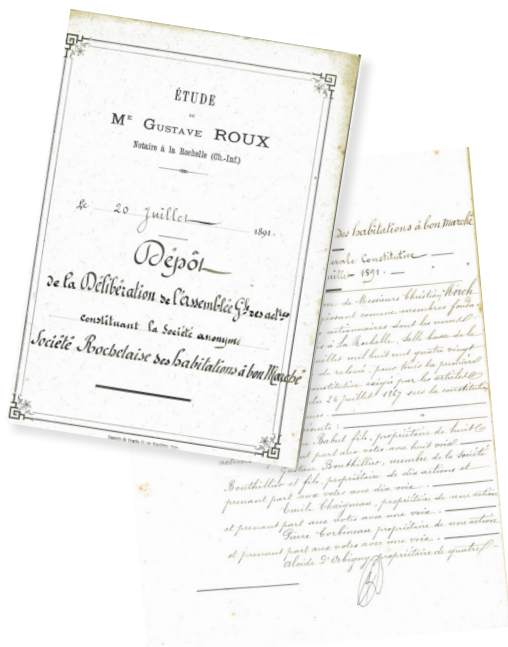 ÉTUDE
DE
Me GUSTAVE ROUX
Notaire à la Rochelle (Ch.-Inf.)
Le 20 Juillet 1891.
Dépôt
de la Délibération de l'Assemblée Gle des actres
constituant la Société anonyme
Société Rochelaise des habitations à bon Marché
des habitations à bon marché
rale Constitutive
uillet 1891.
de Messieurs Christian Morch
issant comme membres fonda-
actionnaires dont les noms
à la Rochelle, Salle basse de la
uillet mil huit cent quatre vingt
constitutive exigée par les articles
du 24 Juillet 1867 sur la constitution
Babut fils, propriétaire de huit
part aux votes avec huit voix
Gustave Bouthillier, membre de la Société
Bouthillier et fils, propriétaire de dix actions et
prenant part aux votes avec dix voix.
Emile Chaigneau, propriétaire de une action
et prenant part aux votes avec une voix.
Pierre Corbineau propriétaire de une action
et prenant part aux votes avec une voix.
Alcide D'Orbigny, propriétaire de quatre